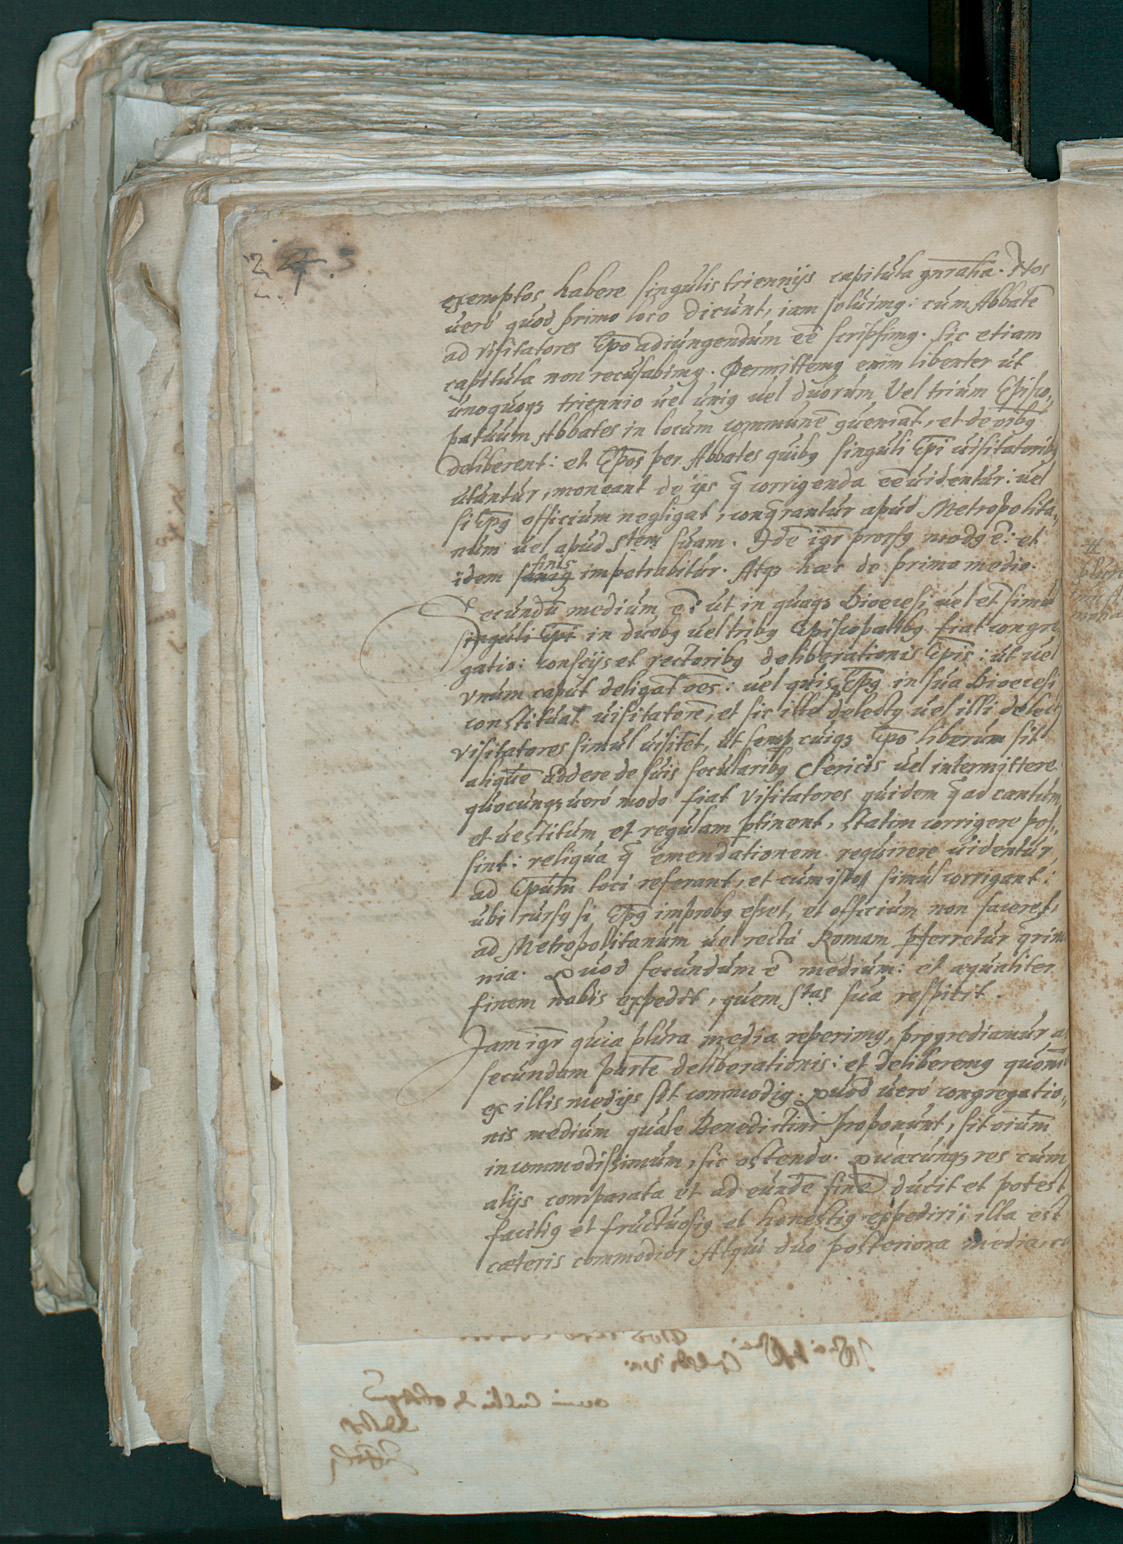 exemptos habere singulis triennijs capitula gn̄ralia. Nos
uerò quod primo loco dicunt, iam soluimꝰ: cum Abbatē
ad visitatores Ep̄o adiungendum eē scripsimꝰ. Sic etiam
capitula non recusabimꝰ. Permittemꝰ enim libenter ut
unoquoqꝫ triennio uel uniꝰ uel duorum Vel trium Episco„
patuum Abbates in locum communē ꝯueniāt, et de oībꝰ
deliberent: et Ep̄os per Abbates quibꝰ singuli Ep̄i uisitatoribꝰ
utuntur, moneant de ijs q̄ corrigenda eē uidentur: uel
si Ep̄ꝰ officium negligat, conq̄rantur apud Metropolita„
num uel apud S.tem suam. Idē igr̄ prorsꝰ modꝰ ē: et
idem finis impetrabitur. Atqꝫ hæc de primo medio.
Secundū medium ē: ut in quaqꝫ Dioecesi uel et simul
singuli Ep̄i in duobꝰ uel tribꝰ Episcopatibꝰ fiat congre
gatio: conscijs et rectoribꝰ deliberationis Ep̄is: ut uel
vnum caput deligāt oēs: uel quis Ep̄ꝰ in sua Dioecesi
constituat uisitatorē, et sic ille delectꝰ uel illi delecti
visitatores simul uisitēt, ut semꝑ cuiqꝫ Ep̄o liberum sit
aliquē addere de suis secularibꝰ Clericis uel intermittere.
quocunqꝫ uerò modo fiat Visitatores quidem q̄ ad cantum
et uestitum et regulam ꝑtinent, statim corrigere pos„
sint: reliqua q̄ emendationem requirere uidentur,
ad Ep̄um loci referant, et cum isto simul corrigant:
ubi rursꝰ si Ep̄ꝰ improbꝰ esset, et officium non faceret,
ad Metropolitanum uel rectà Romam ꝑferretur q̄rimo
nia. Quod secundum ē medium: et æqualiter
finem nobis expedit, quem S.tas sua respicit.
Jam igr̄ quia plura media reperimꝰ, progrediamur a
secundam partē deliberationis: et deliberemꝰ quodnā
ex illis medijs sit commodiꝰ. Quod uerò congregatio„
nis medium quale Benedictini proponunt, sit oīum
incommodissimum, sic ostendo. Quæcunqꝫ res cum
alijs comparata et ad eundē finē ducit et potest
faciliꝰ et fructuosiꝰ et honestiꝰ expediri, illa est
cæteris commodior. Atqui duo posteriora media,